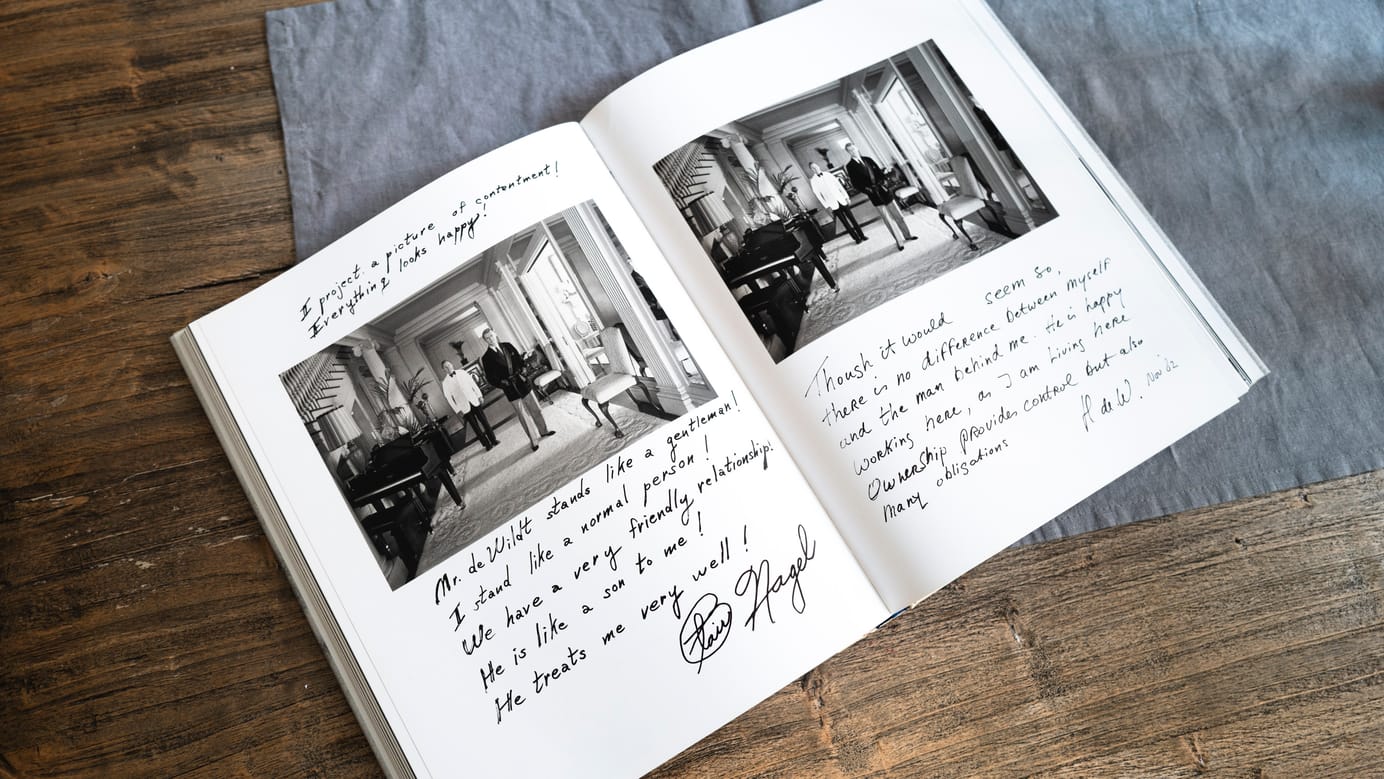 I project a picture of contentment!
Everything looks happy!
Mr. de Wildt stands like a gentleman!
I stand like a normal person!
We have a very friendly relationship!
He is like a son to me!
He treats me very well!
Clair Nagel
Though it would seem so,
there is no difference between myself
and the man behind me. He is happy
working here, as I am living here
Ownership provides control but also
many obligations
H de W. Nov 82